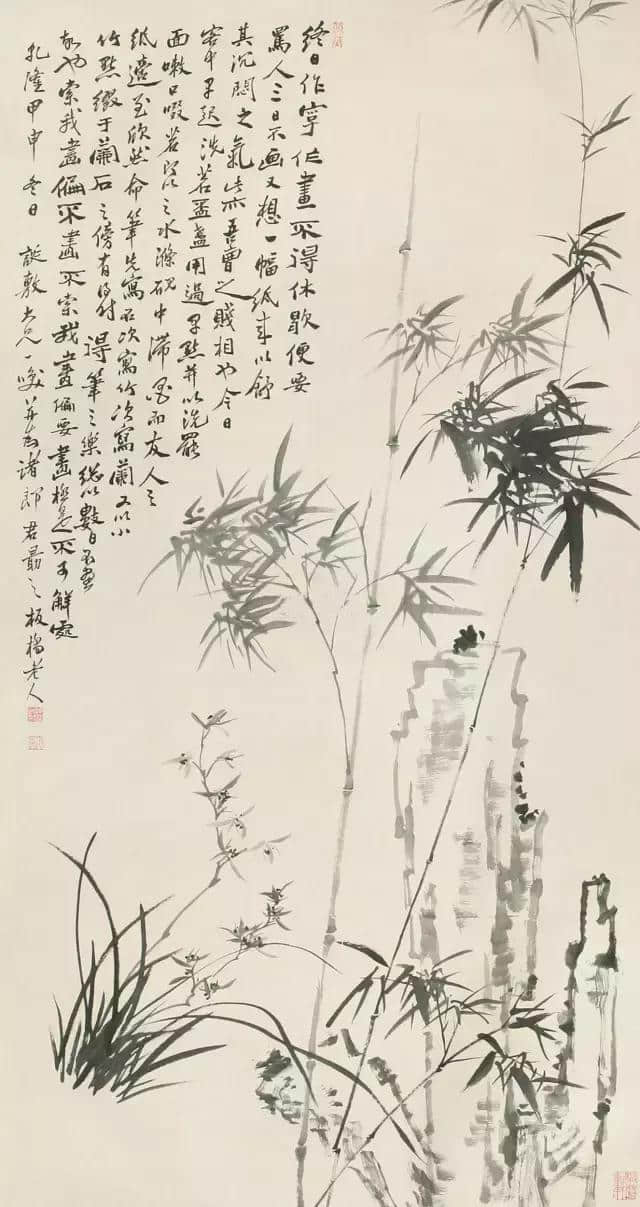 終日作字作畫不得休歇便要
罵人三日不画又想一幅紙來以舒
其沉悶之氣此亦吾曹之賤相也今日
客中早起洗茗盃盞用過早點并以洗罷
面嗽口啜茗以之水滌硯中滯墨而友人之
紙適至欣然命筆先寫石次寫竹次寫蘭又以小
竹點綴于蘭石之傍有時得筆之樂總以數日不畫
故也索我畫偏不畫不索我畫偏要畫極是不可解處
乾隆甲申冬日 誕敷大兄一笑并為諸郎君勗之 板橋老人